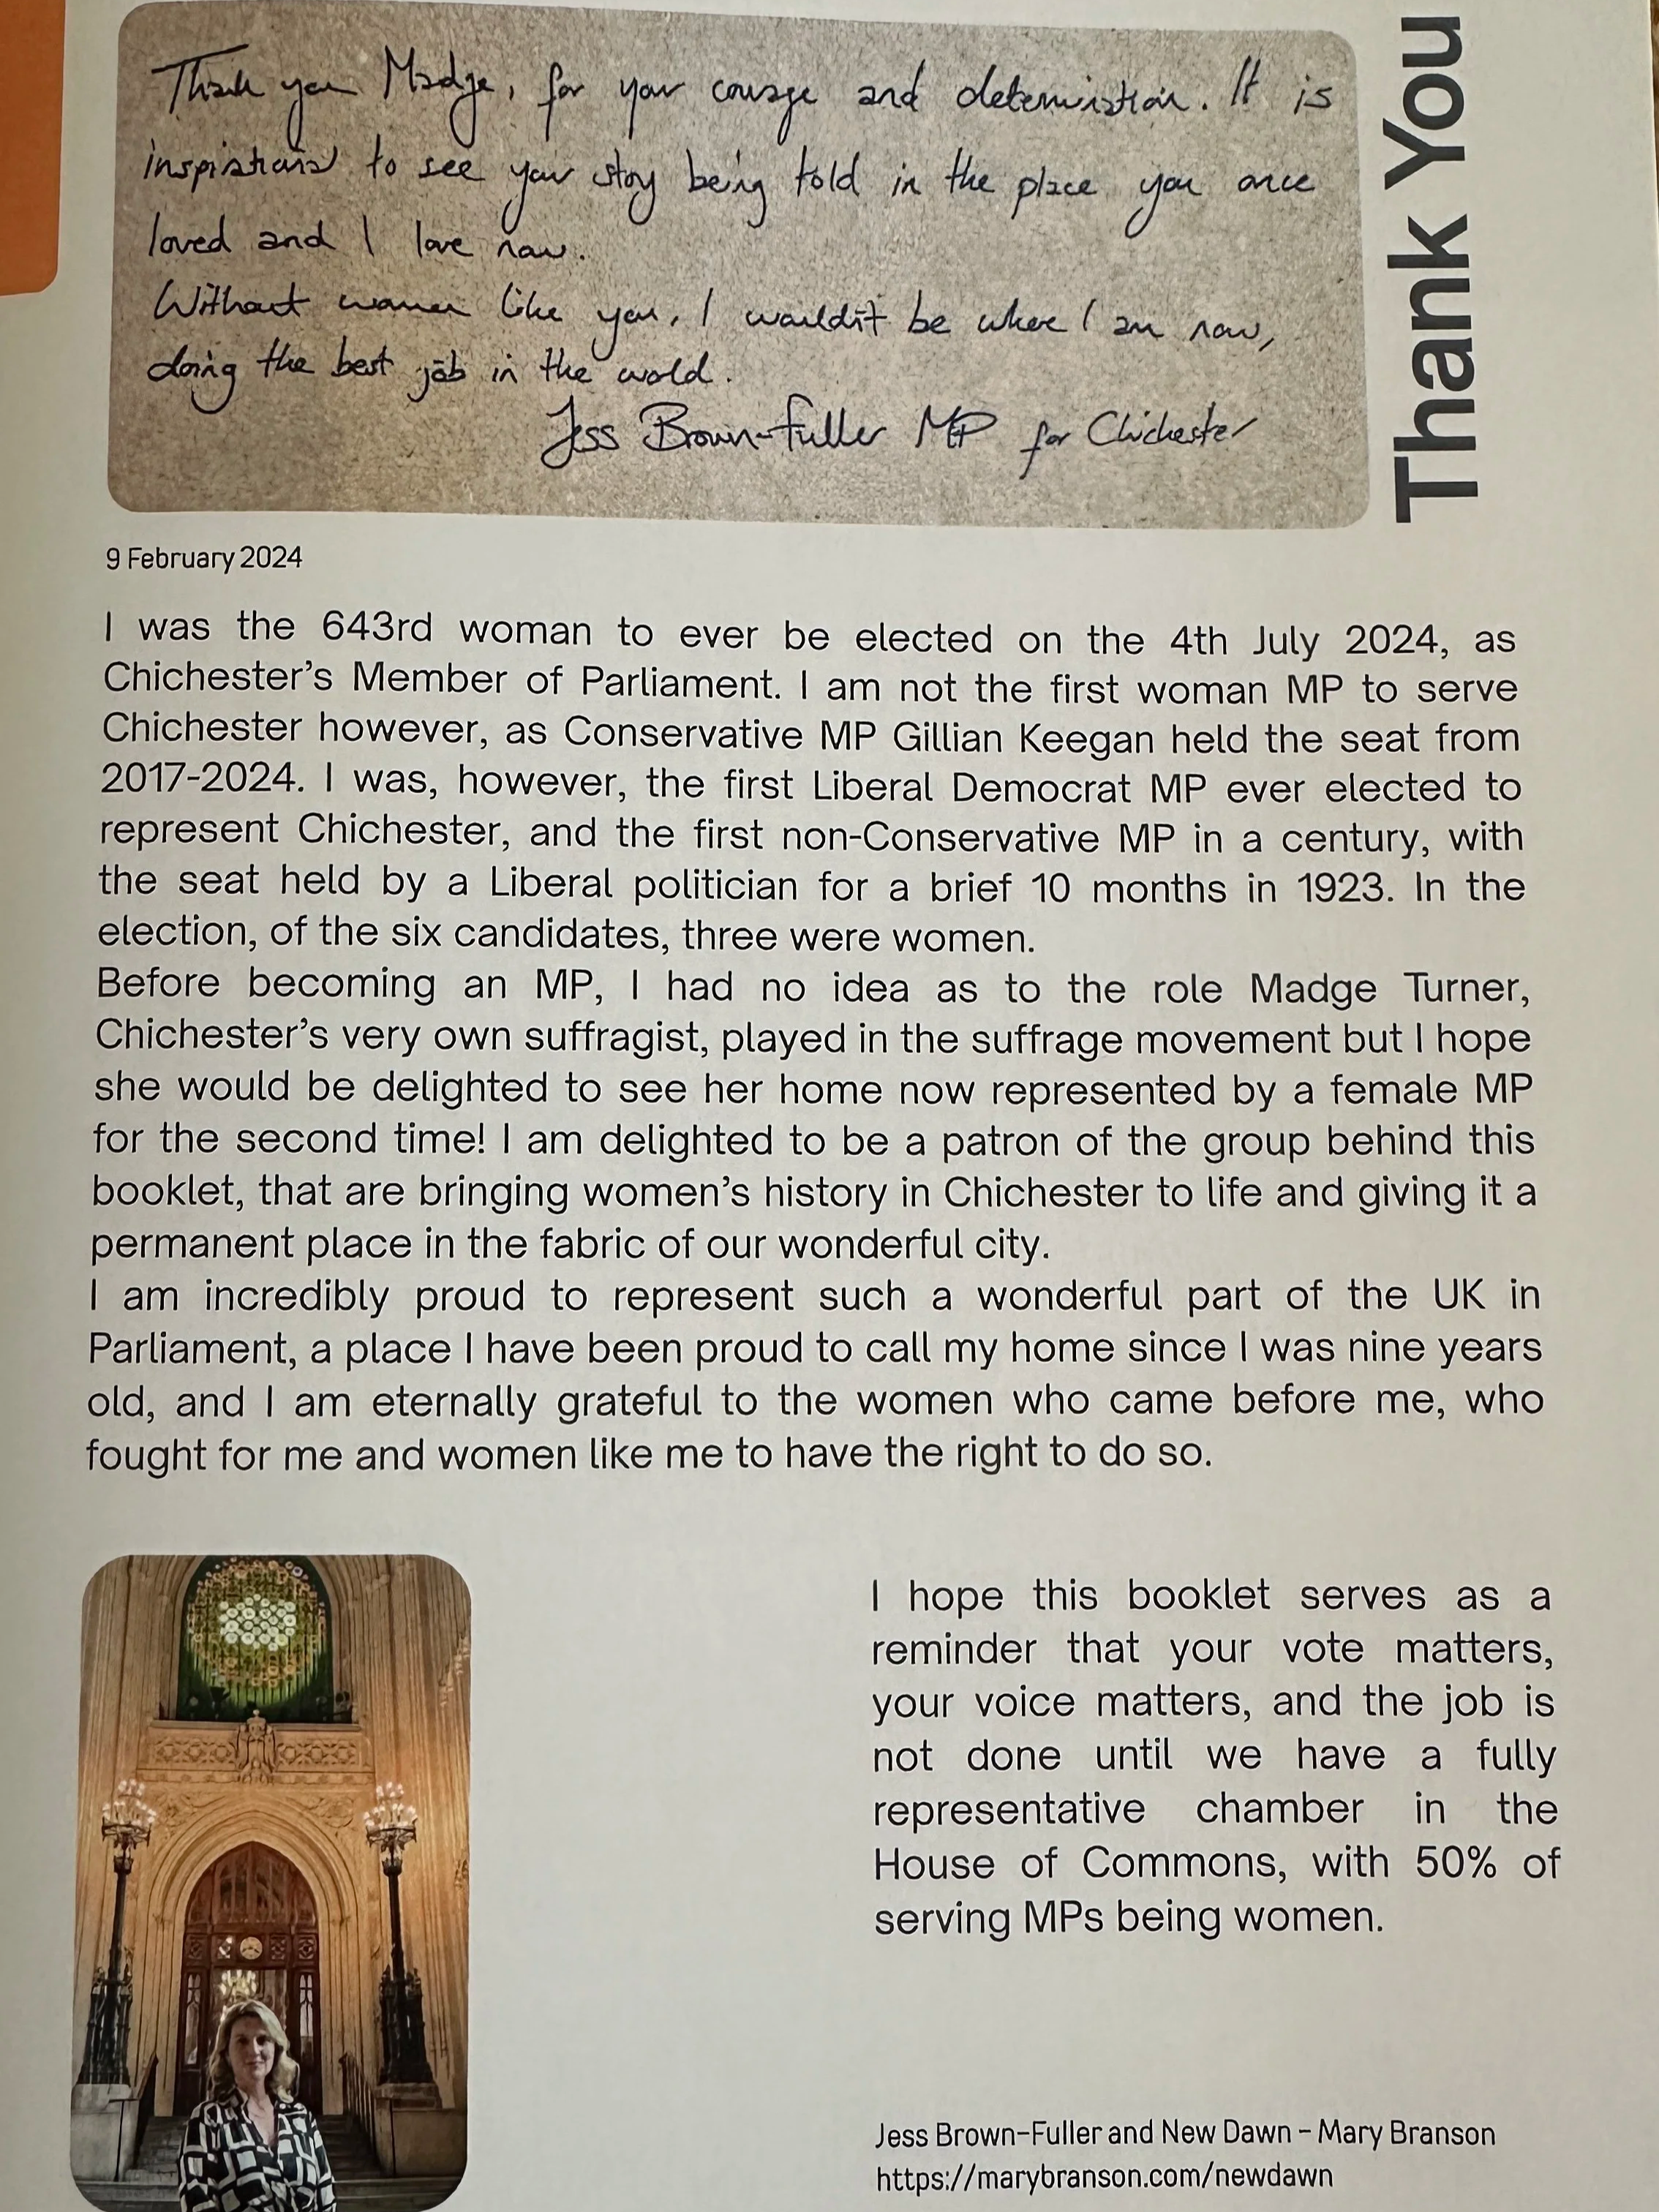 Thank you Madge, for your courage and determination. It is
inspirational to see your story being told in the place you once
loved and I love now.
Without women like you, I wouldn't be where I am now,
doing the best job in the world.
Jess Brown-Fuller MP for Chichester
Thank You
9 February 2024
I was the 643rd woman to ever be elected on the 4th July 2024, as
Chichester's Member of Parliament. I am not the first woman MP to serve
Chichester however, as Conservative MP Gillian Keegan held the seat from
2017-2024. I was, however, the first Liberal Democrat MP ever elected to
represent Chichester, and the first non-Conservative MP in a century, with
the seat held by a Liberal politician for a brief 10 months in 1923. In the
election, of the six candidates, three were women.
Before becoming an MP, I had no idea as to the role Madge Turner,
Chichester's very own suffragist, played in the suffrage movement but I hope
she would be delighted to see her home now represented by a female MP
for the second time! I am delighted to be a patron of the group behind this
booklet, that are bringing women's history in Chichester to life and giving it a
permanent place in the fabric of our wonderful city.
I am incredibly proud to represent such a wonderful part of the UK in
Parliament, a place I have been proud to call my home since I was nine years
old, and I am eternally grateful to the women who came before me, who
fought for me and women like me to have the right to do so.
I hope this booklet serves as a
reminder that your vote matters,
your voice matters, and the job is
not done until we have a fully
representative chamber in the
House of Commons, with 50% of
serving MPs being women.
Jess Brown-Fuller and New Dawn - Mary Branson
https://marybranson.com/newdawn